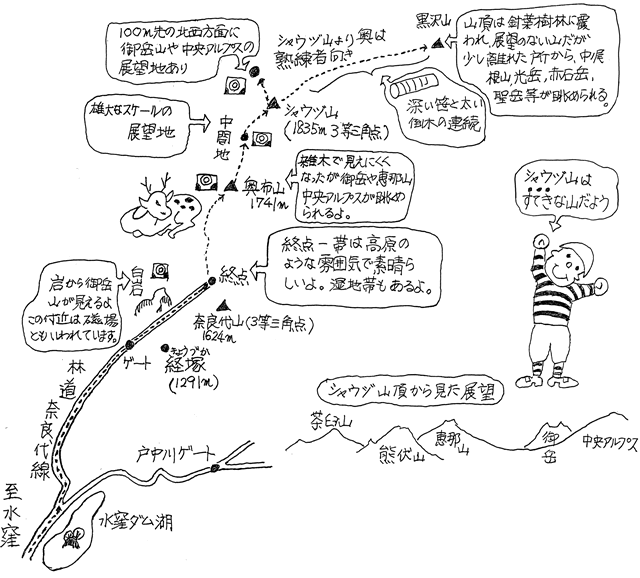 100m先の北西方面に
御岳山や中央アルプスの
展望地あり
シャウヅ山より奥は
熟練者向き
黒沢山
山頂は針葉樹林に覆
われ、展望のない山だが
少し離れた所から、中ノ尾
根山、光岳、赤石岳、
聖岳等が眺められる。
深い笹と太い
倒木の連続
雄大なスケールの
展望地
中間地
シャウヅ山
(1835m 3等三角点)
奥布山
1741m
雑木で見えにくく
なったが御岳や恵那山
中央アルプスが眺め
られるよ。
シャウヅ山は
すてきな山だよう
終点一帯は高原の
ような雰囲気で素晴ら
しいよ。湿地帯もあるよ。
白岩
岩から御岳
山が見えるよ
この付近は磁場
ともいわれています。
終点
奈良代山(3等三角点)
1624m
ゲート
きょうづか
経塚
(1291m)
林道
奈良代線
戸中川ゲート
至水窪
水窪ダム湖
シャウヅ山頂から見た展望
茶臼山
熊伏山
恵那山
御岳
中央アルプス